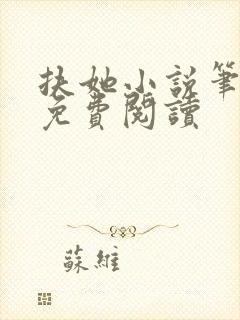 扶她小说筆
免費閱讀
蘇維